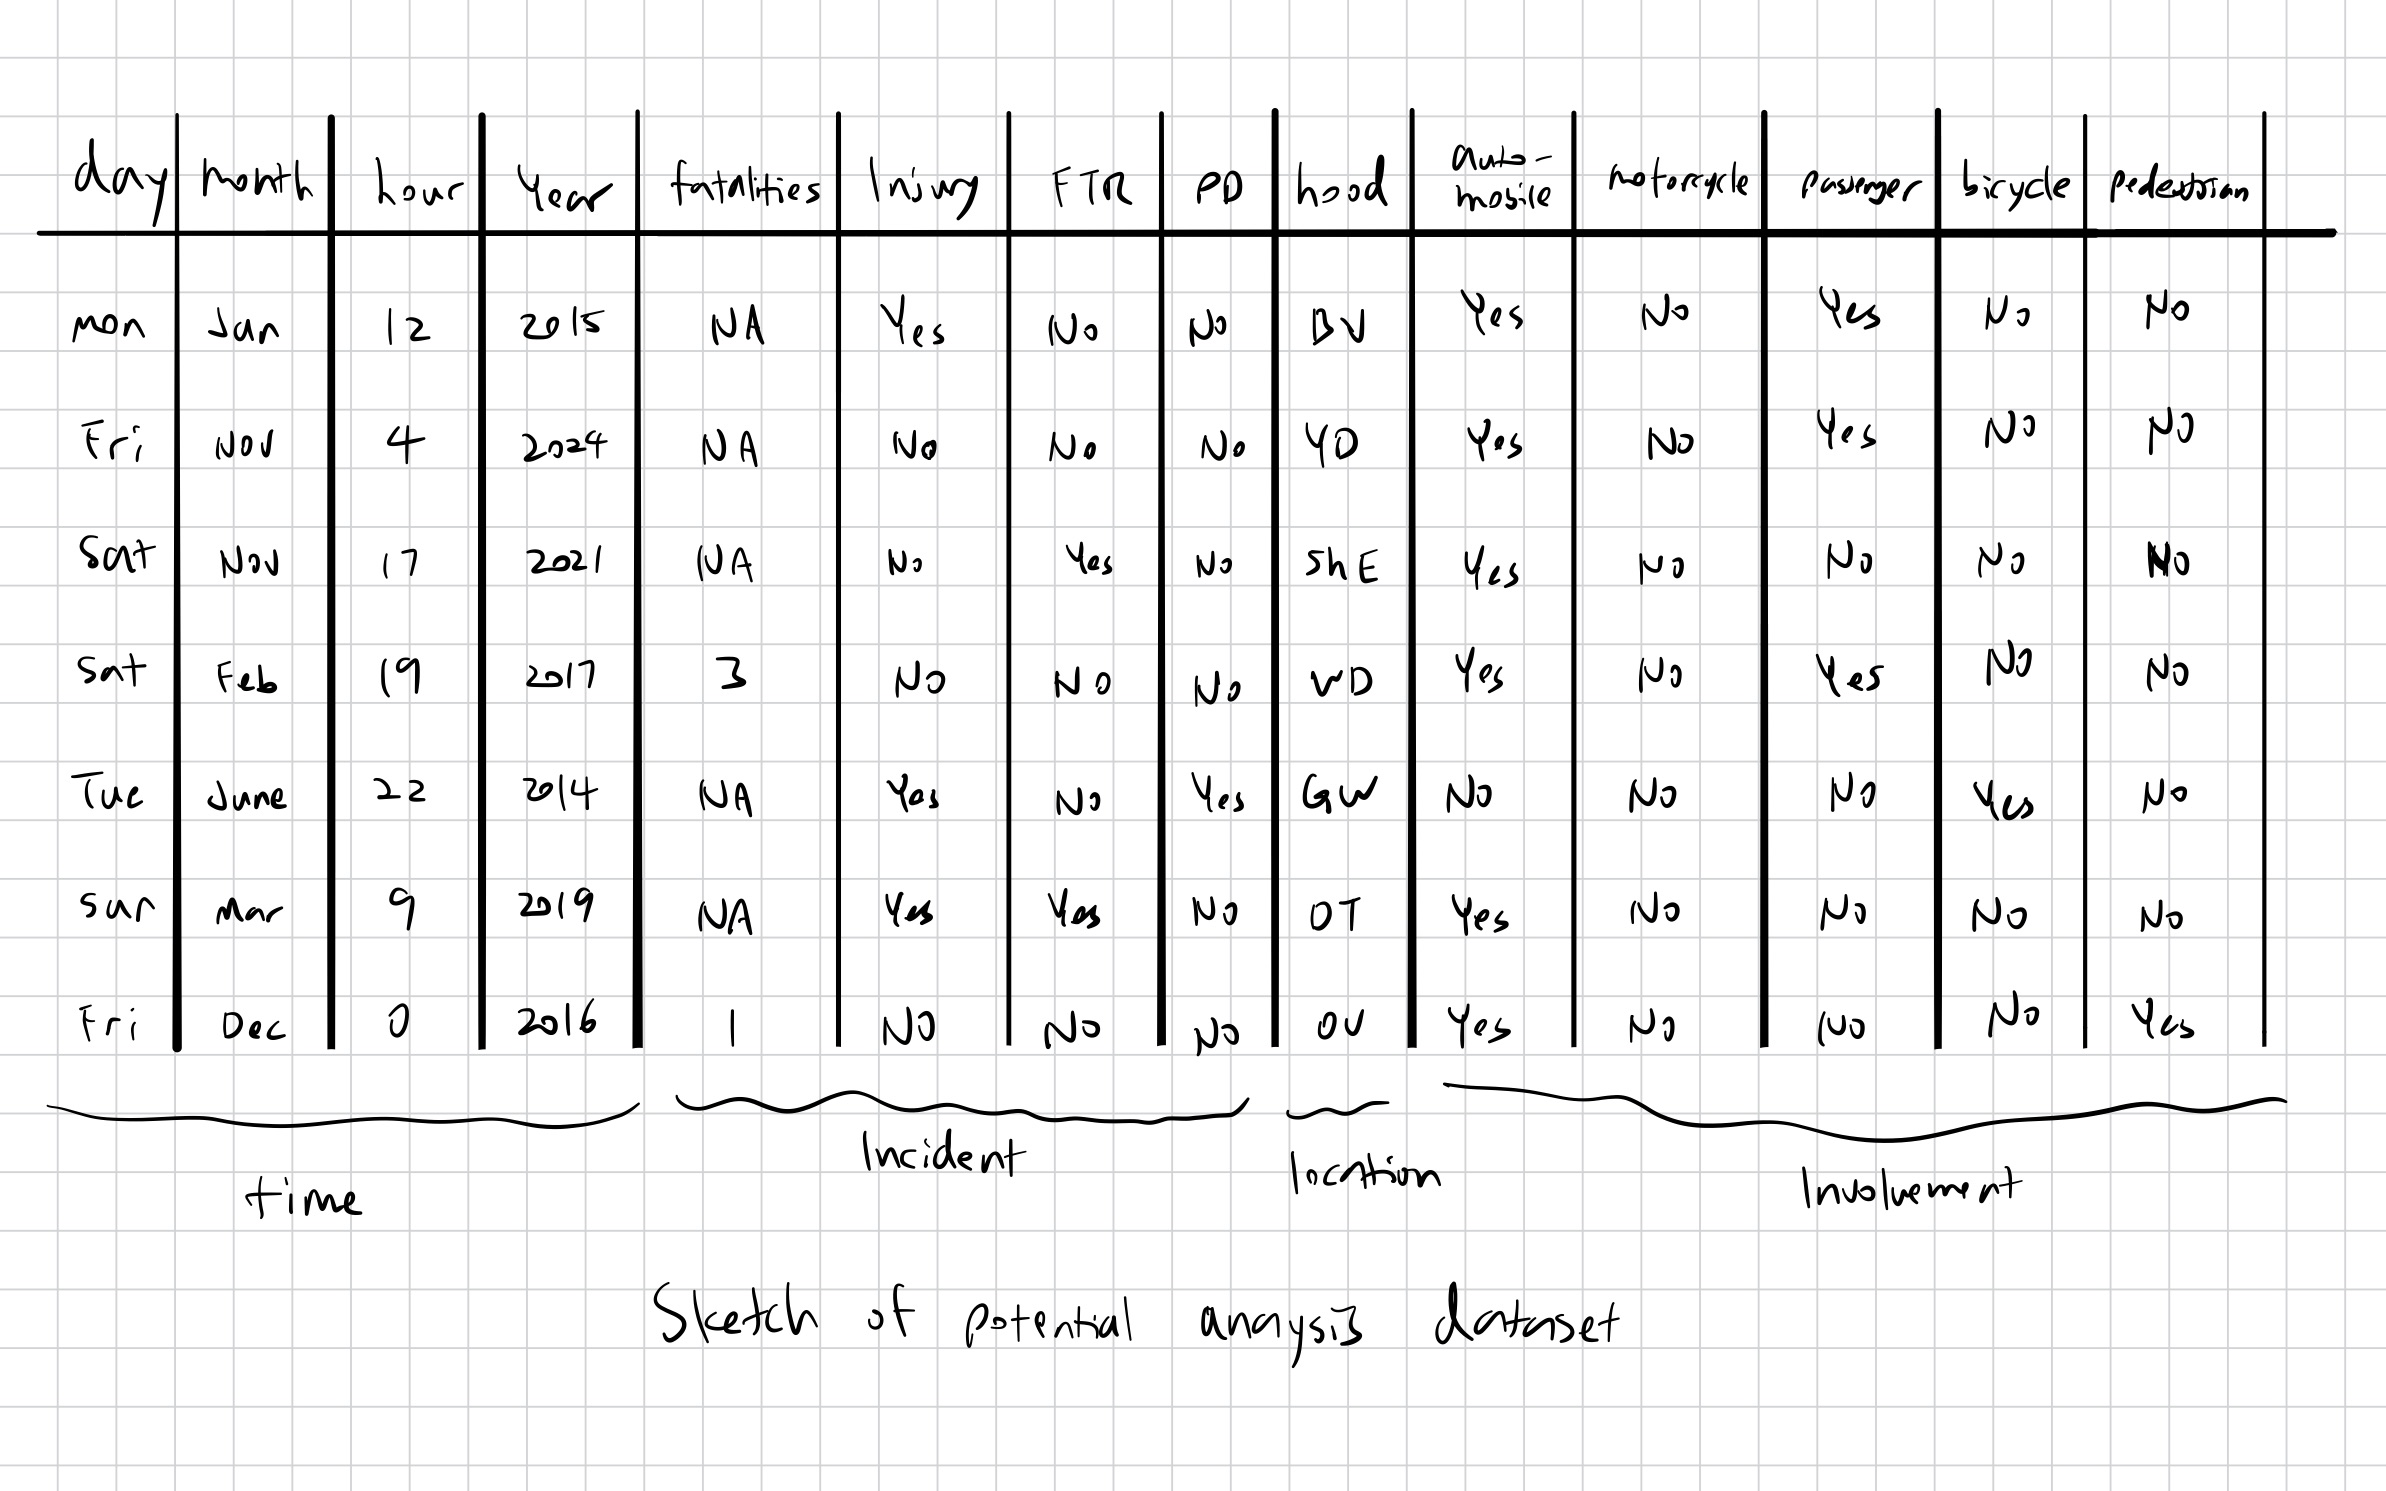 day month hour Year fatalities Injury FTR PD hood auto-mobile motorcycle passenger bicycle pedestrian
mon Jan 12 2015 NA Yes No No BV Yes No Yes No No
Fri Nov 4 2024 NA No No No YD Yes No Yes No No
Sat Nov 17 2021 NA No Yes No ShE Yes No No No No
Sat Feb 19 2017 3 No No No WD Yes No Yes No No
Tue June 22 2014 NA Yes No Yes GW No No No Yes No
sun mar 9 2019 NA Yes Yes No OT Yes No No No No
Fri Dec 0 2016 1 NO No No OV Yes No No No Yes
time Incident location Involvement
Sketch of potential anaysis dataset